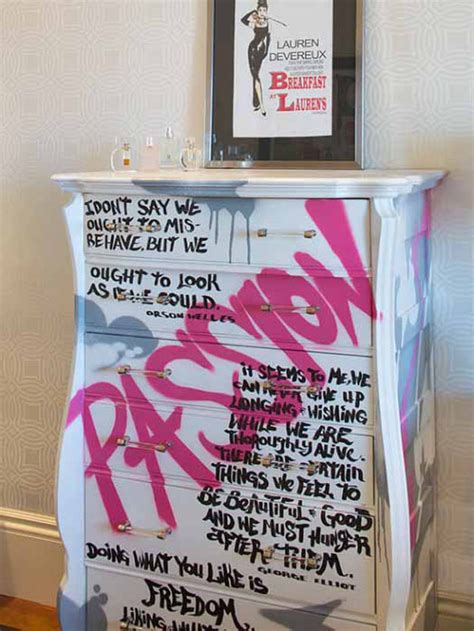 LAUREN
DEVEREUX
BREAKFAST
AT
LAUREN'S
I DONT SAY WE
OUGHT TO MIS-
BEHAVE, BUT WE
OUGHT TO LOOK
AS IF WE COULD.
ORSON WELLES
PASSION
IT SEEMS TO ME, WE
CAN NEVER GIVE UP
LONGING & WISHING
WHILE WE ARE
THOROUGHLY ALIVE.
THERE ARE CERTAIN
THINGS WE FEEL TO
BE BEAUTIFUL & GOOD
AND WE MUST HUNGER
AFTER THEM.
GEORGE ELLIOT
DOING WHAT YOU LIKE IS
FREEDOM
LIKING WHAT